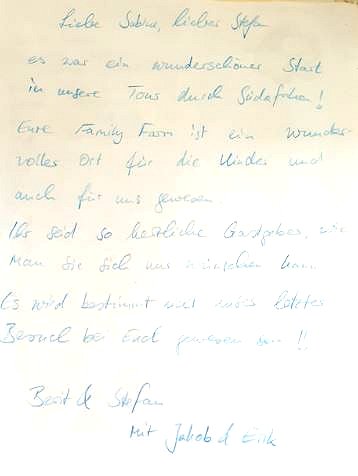 Liebe Sabine, lieber Stefan
es war ein wunderschöner Start
in unsere Tour durch Südafrika!
Eure Family Farm ist ein wunder-
voller Ort für die Kinder und
auch für uns gewesen.
Ihr seid so herzliche Gastgeber, wie
man sie sich nur wünschen kann.
Es wird bestimmt nicht unser letzter
Besuch bei Euch gewesen sein!!
Berit & Stefan
mit Jakob & Erik